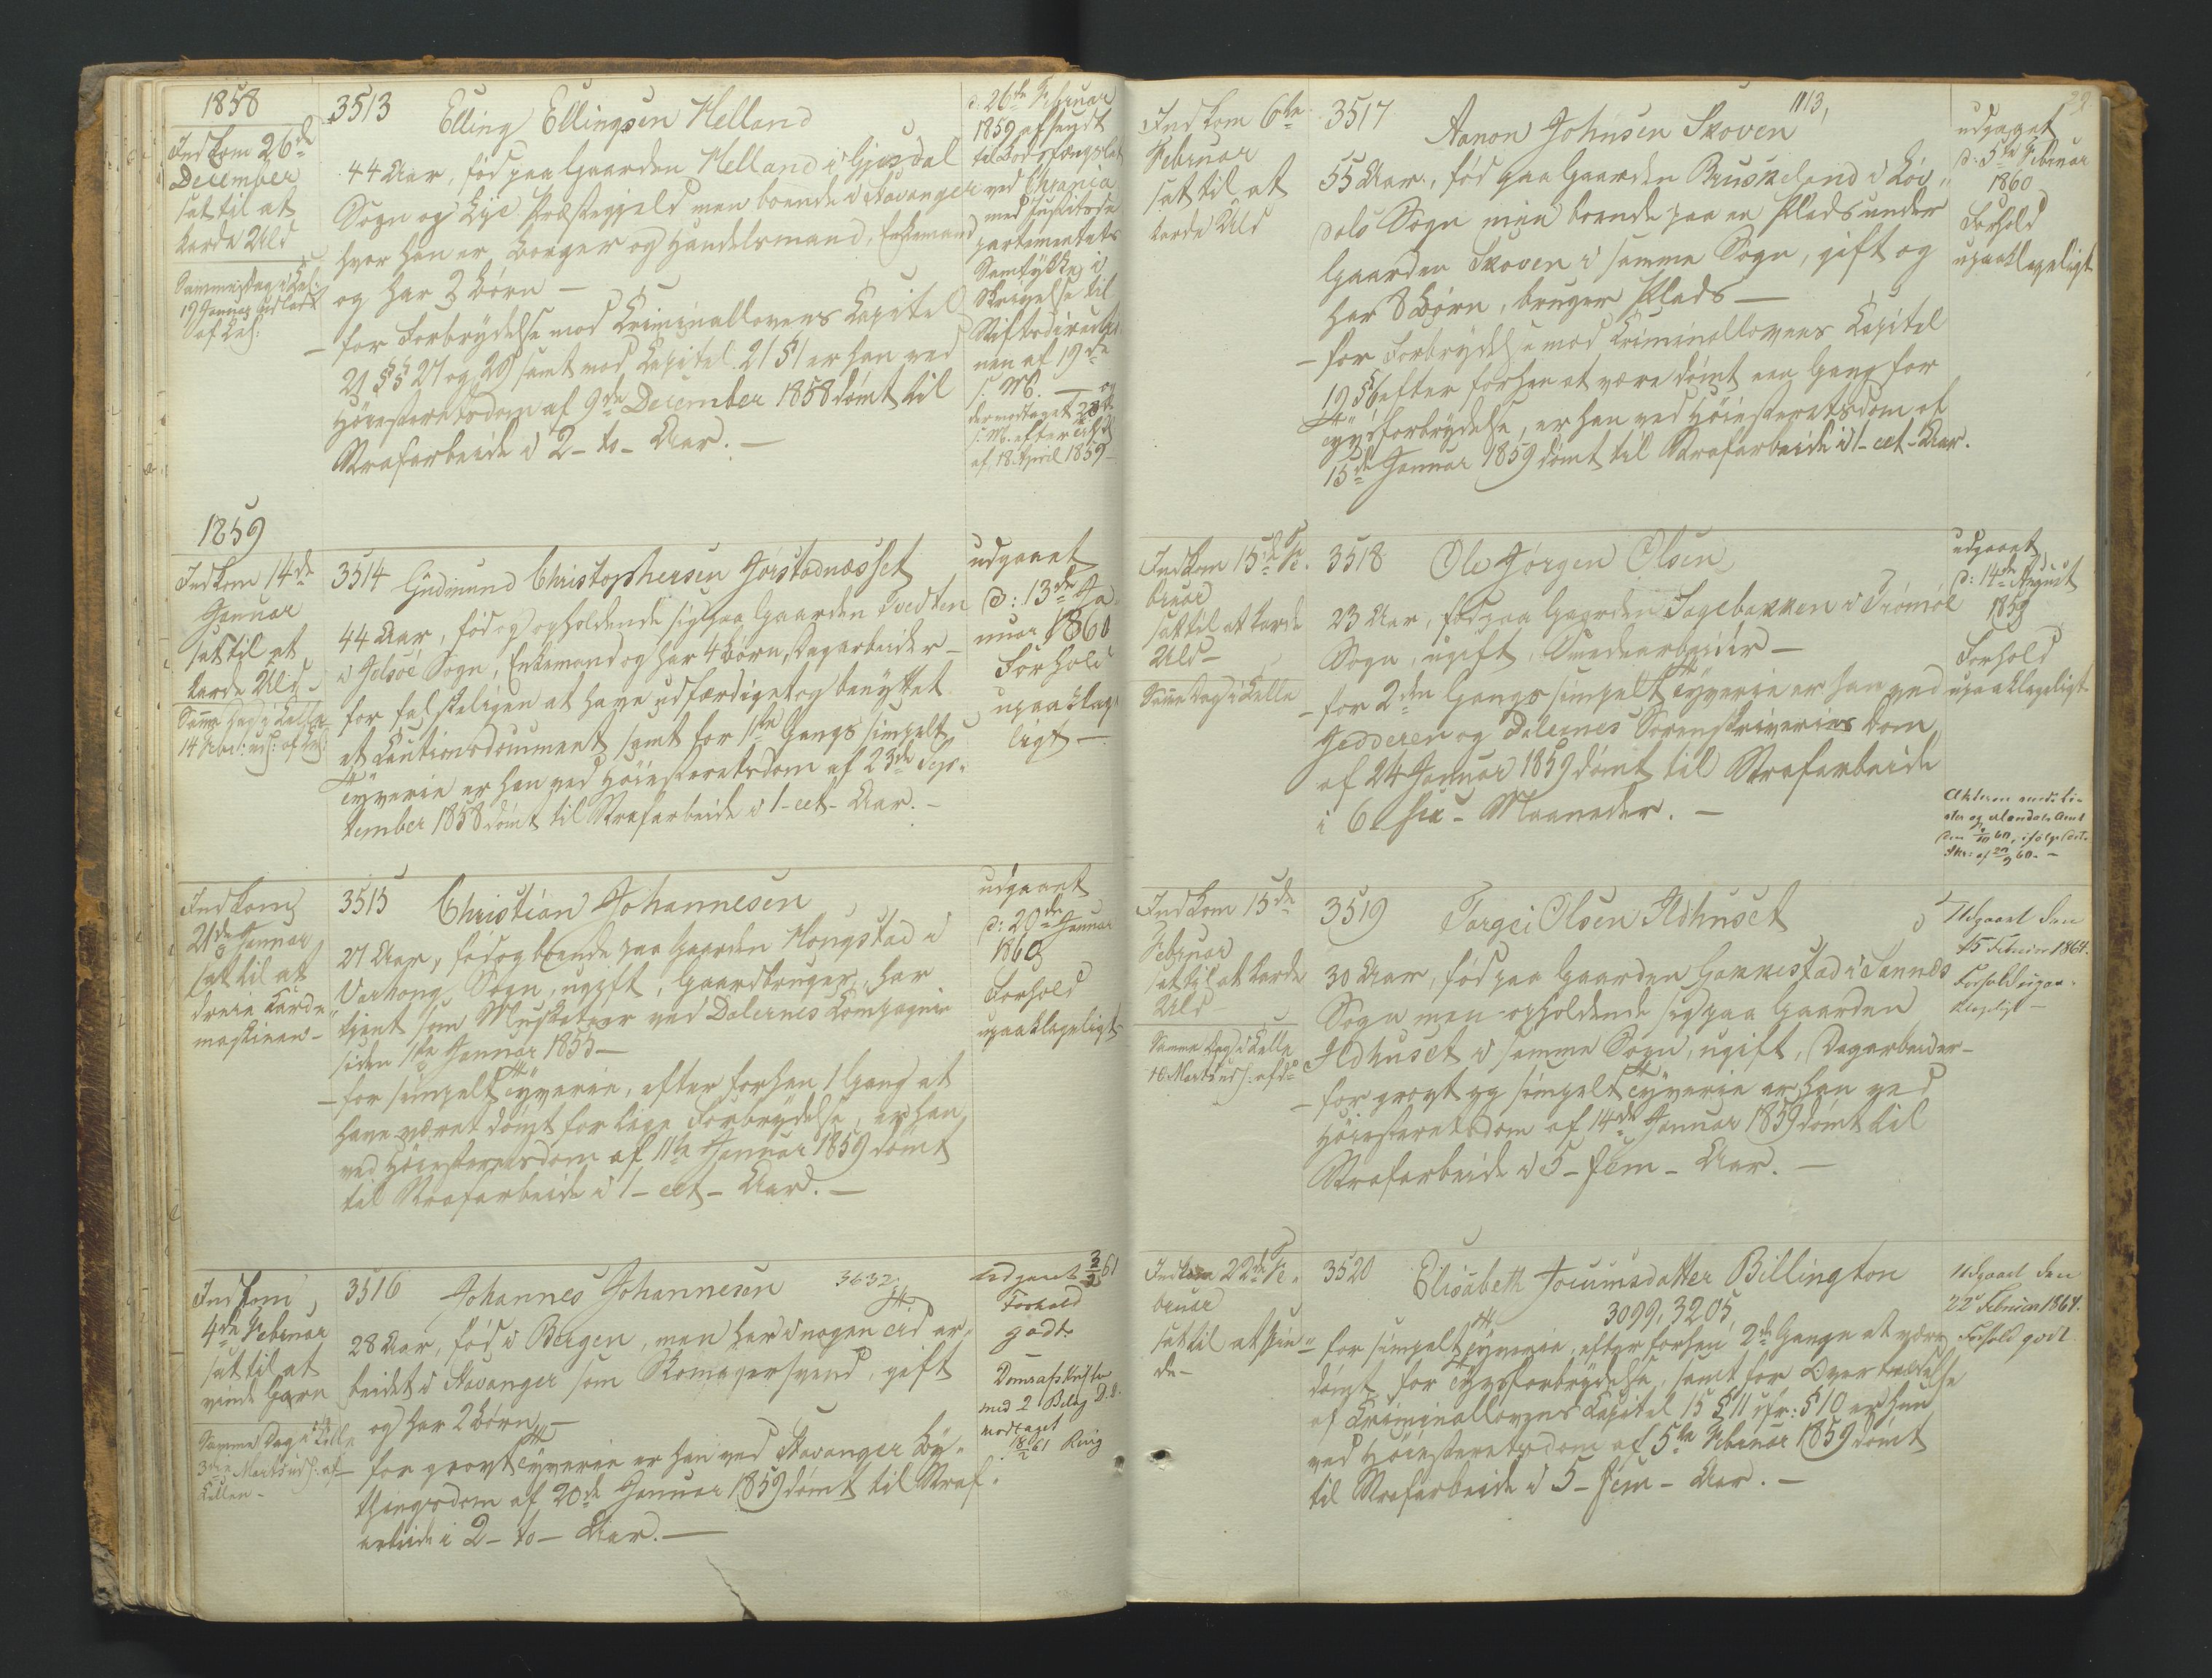 1858
Indkom 26de
December
sat til at
karde Uld
Samme dag i Cel:
19 Januar udladt
af Cel:
3513 Elling Ellingsen Helland
44 Aar, fød paa Gaarden Helland i Gjesdal
Sogn og Lye Præstegjeld men boende i Stavanger
hvor han er Borger og Handelsmand, Enkemand
og har 3 Børn —
— for Forbrydelse mod Criminallovens Capitel
21 §§ 27 og 29 samt mod Capitel 21 § 1 er han ved
Høiesteretsdom af 9de December 1858 dømt til
Strafarbeide i 2 - to - Aar. —
d: 26de Februar
1859 afsendt
til Bodsfængslet
ved Chrania
med Justitsde
partementets
Samtykke i
Skrivelse til
Stiftsdirectio
nen af 19de
s. M. — og
der modtaget 28de
s. M. efter
af 18 April 1859 —
1859
Indkom 14de
Januar
sat til at
karde Uld
Samme Dag i Celle
14 Febr: uds: af Cel:
3514 Gudmund Christophersen Jørstadnæsset
44 Aar, fød og opholdende sig paa Gaarden Tvedten
i Jelsøe Sogn, Enkemand og har 4 Børn, Dagarbeider —
for falskeligen at have udfærdiget og benyttet
et Cautionsdocument samt for 1ste Gangs simpelt
Tyverie er han ved Høiesteretsdom af 23de Sep-
tember 1858 dømt til Strafarbeide i 1 - eet - Aar. —
udgaaet
d: 13de Ja-
nuar 1860
Forhold
upaaklage
ligt —
Indkom
21de Januar
sat til at
dreie Karde
maskinen —
3515 Christian Johannesen
27 Aar, fød og boende paa Gaarden Hougstad i
Varhoug Sogn, ugift, Gaardbruger, har
tjent som Musketeer ved Dalernes Compagnie
siden 1ste Januar 1855 —
— for simpelt Tyverie, efter forhen 1 Gang at
have været dømt for lige Forbrydelse, er han
ved Høiesteretsdom af 11te Januar 1859 dømt
til Strafarbeide i 1 - eet - Aar. —
udgaaet
d: 20de Januar
1860
Forhold
upaaklageligt
Indkom
4de Februar
sat til at
vinde Garn
Samme Dag i Celle
3die Marts uds: af
Cellen —
3516 Johannes Johannesen 3632.
28 Aar, fød i Bergen, men har i nogen Tid ar-
beidet i Stavanger som Skomagersvend, gift
og har 2 Børn —
— for grovt Tyverie er han ved Stavanger By-
thingsdom af 20de Januar 1859 dømt til Straf-
arbeide i 2 - to - Aar. —
Udgaaet 3/2 61
Forhold
godt
Domsafskrifter
med 2 Bilag D. D.
modtaget
18/2 61 Ring
22
Indkom 6te
Februar
sat til at
karde Uld
3517 Aanon Johnsen Skoven 1113,
55 Aar, fød paa Gaarden Bruskeland i Løv-
dals Sogn men boende paa en Plads under
Gaarden Skoven i samme Sogn, gift og
har 8 Børn, bruger Plads —
— for Forbrydelse mod Criminallovens Capitel
19 § 6 efter forhen at være dømt een Gang for
Tyvsforbrydelse, er han ved Høiesteretsdom af
15de Januar 1859 dømt til Strafarbeide i 1 - eet - Aar.
udgaaet
d: 5te Februar
1860
Forhold
upaaklageligt
Indkom 15de Fe-
bruar
sat til at karde
Uld —
Samme Dag i Celle
3518 Ole Jørgen Olsen
23 Aar, fød paa Gaarden Sagebakken i Tromøe
Sogn, ugift, Smedearbeider —
— for 2den Gangs simpelt Tyverie er han ved
Jedderen og Dalernes Sorenskriveries Dom
af 24 Januar 1859 dømt til Strafarbeide
i 6 - sex - Maaneder. —
udgaaet
d: 14de August
1859
Forhold
upaaklageligt
Indkom 15de
Februar
sat til at karde
Uld —
Samme Dag i Celle
10 Marts uds: af do
3519 Targei Olsen Ildhuset
30 Aar, fød paa Gaarden Gakkestad i Sannes
Sogn men opholdende sig paa Gaarden
Ildhuset i samme Sogn, ugift, Dagarbeider —
— for grovt og simpelt Tyverie er han ved
Høiesteretsdom af 14de Januar 1859 dømt til
Strafarbeide i 5 - fem - Aar. —
Udgaaet den
15 Februar 1864.
Forhold upaa-
klageligt —
Indkom 22de Fe-
bruar
sat til at spin-
de —
3520 Elisabeth Joeumsdatter Billington
3099, 3205,
— for simpelt Tyverie, efter forhen 2de Gange at være
dømt for Tyvsforbrydelse, samt for Overtrædelse
af Criminallovens Capitel 15 § 11 jfr: § 10 er hun
ved Høiesteretsdom af 5te Februar 1859 dømt
til Strafarbeide i 5 - fem - Aar. —
Udgaaet den
22 Februar 1864.
Forhold godt.